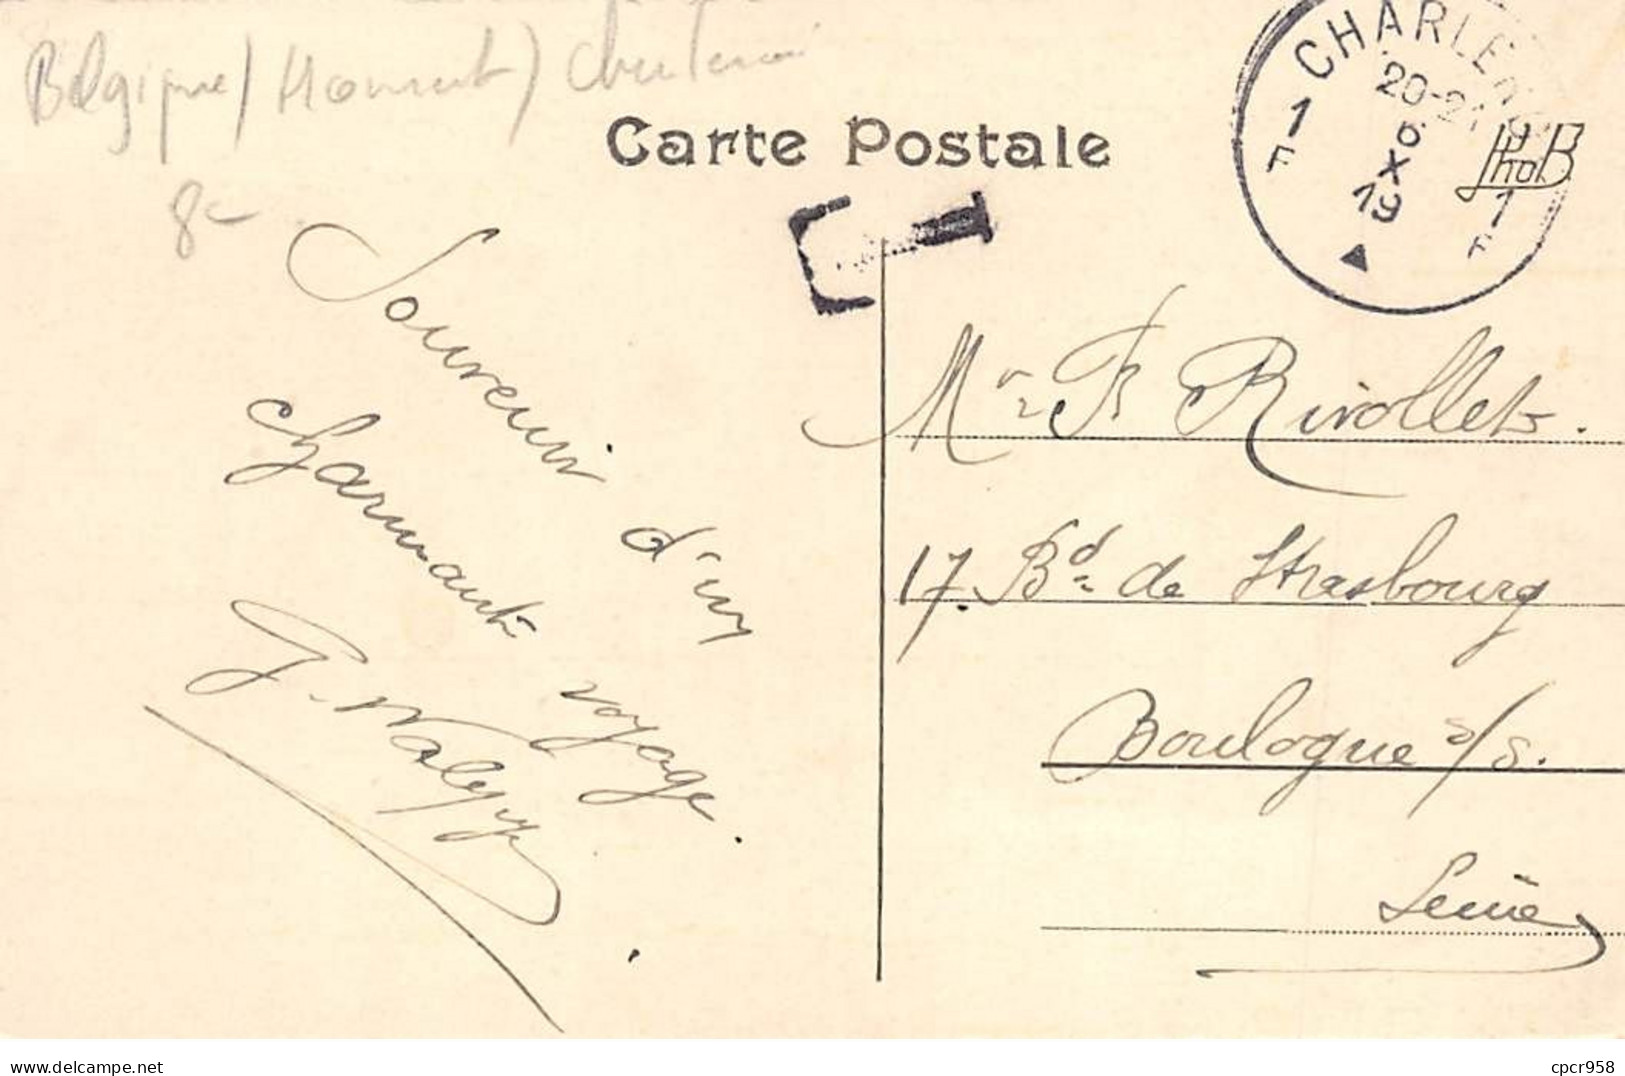 Belgique / Hainaut /
8-
Carte Postale
CHARLEROI
20-21
6
X
19
1
F
1
F
PhoB
T
Souvenir d'un
charmant voyage.
Mr F Rivollet.
17. Bd de Strasbourg
Boulogne s/s.
Seine
delcampe.net
cpcr958